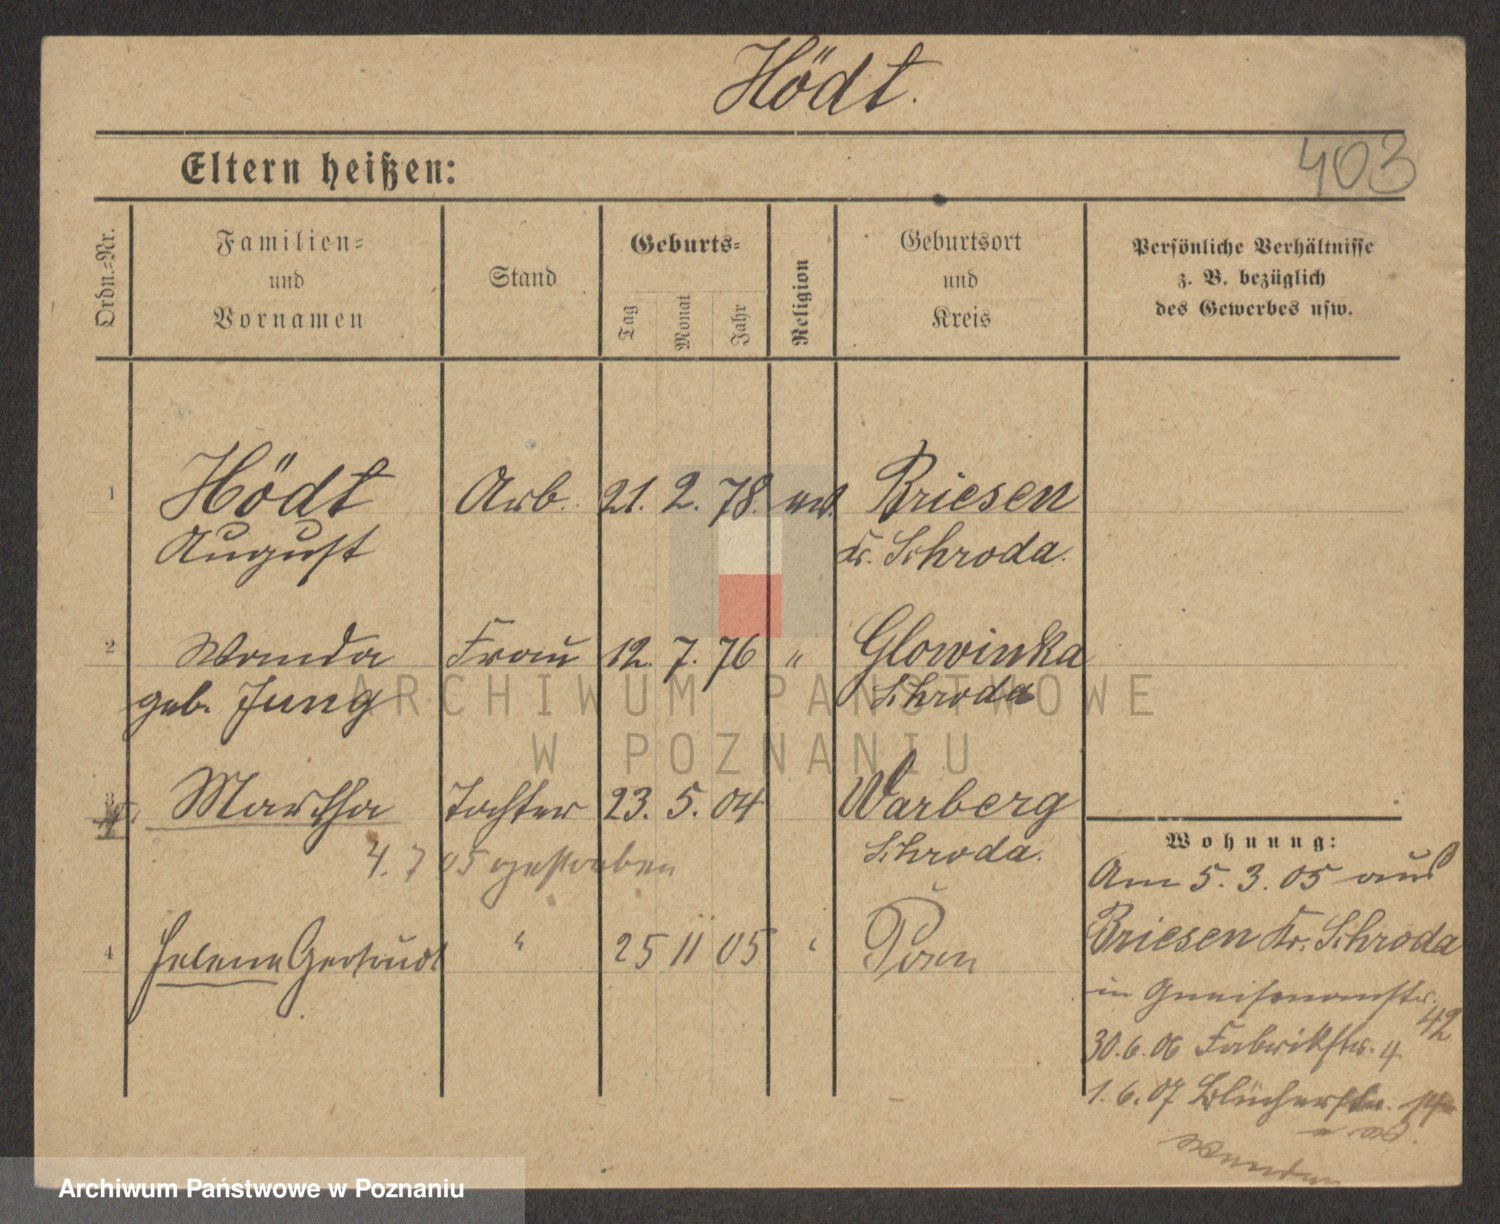 Hödt.
403
Eltern heißen:
Ordn.-Nr.
Familien-
und
Vornamen
Stand
Geburts-
Tag
Monat
Jahr
Religion
Geburtsort
und
Kreis
Persönliche Verhältnisse
z. B. bezüglich
des Gewerbes usw.
1 Hödt Arb. 21. 2. 78. ev. Briesen
August Kr. Schroda.
2 Wanda Frau 12. 7. 76 " Glowinka
geb. Jung Schroda
Martha Tochter 23. 5. 04 Warberg
Schroda.
4. 7 05 gestorben
4 Helene Gertrud " 25 11 05 " Posen
Wohnung:
Am 5. 3. 05 aus
Briesen Kr. Schroda
in Gneisenaustr.
42
30. 6. 06 Fabrikstr. 4
1. 6. 07 Blücherstr.
wenden
ARCHIWUM PAŃSTWOWE
W POZNANIU
Archiwum Państwowe w Poznaniu